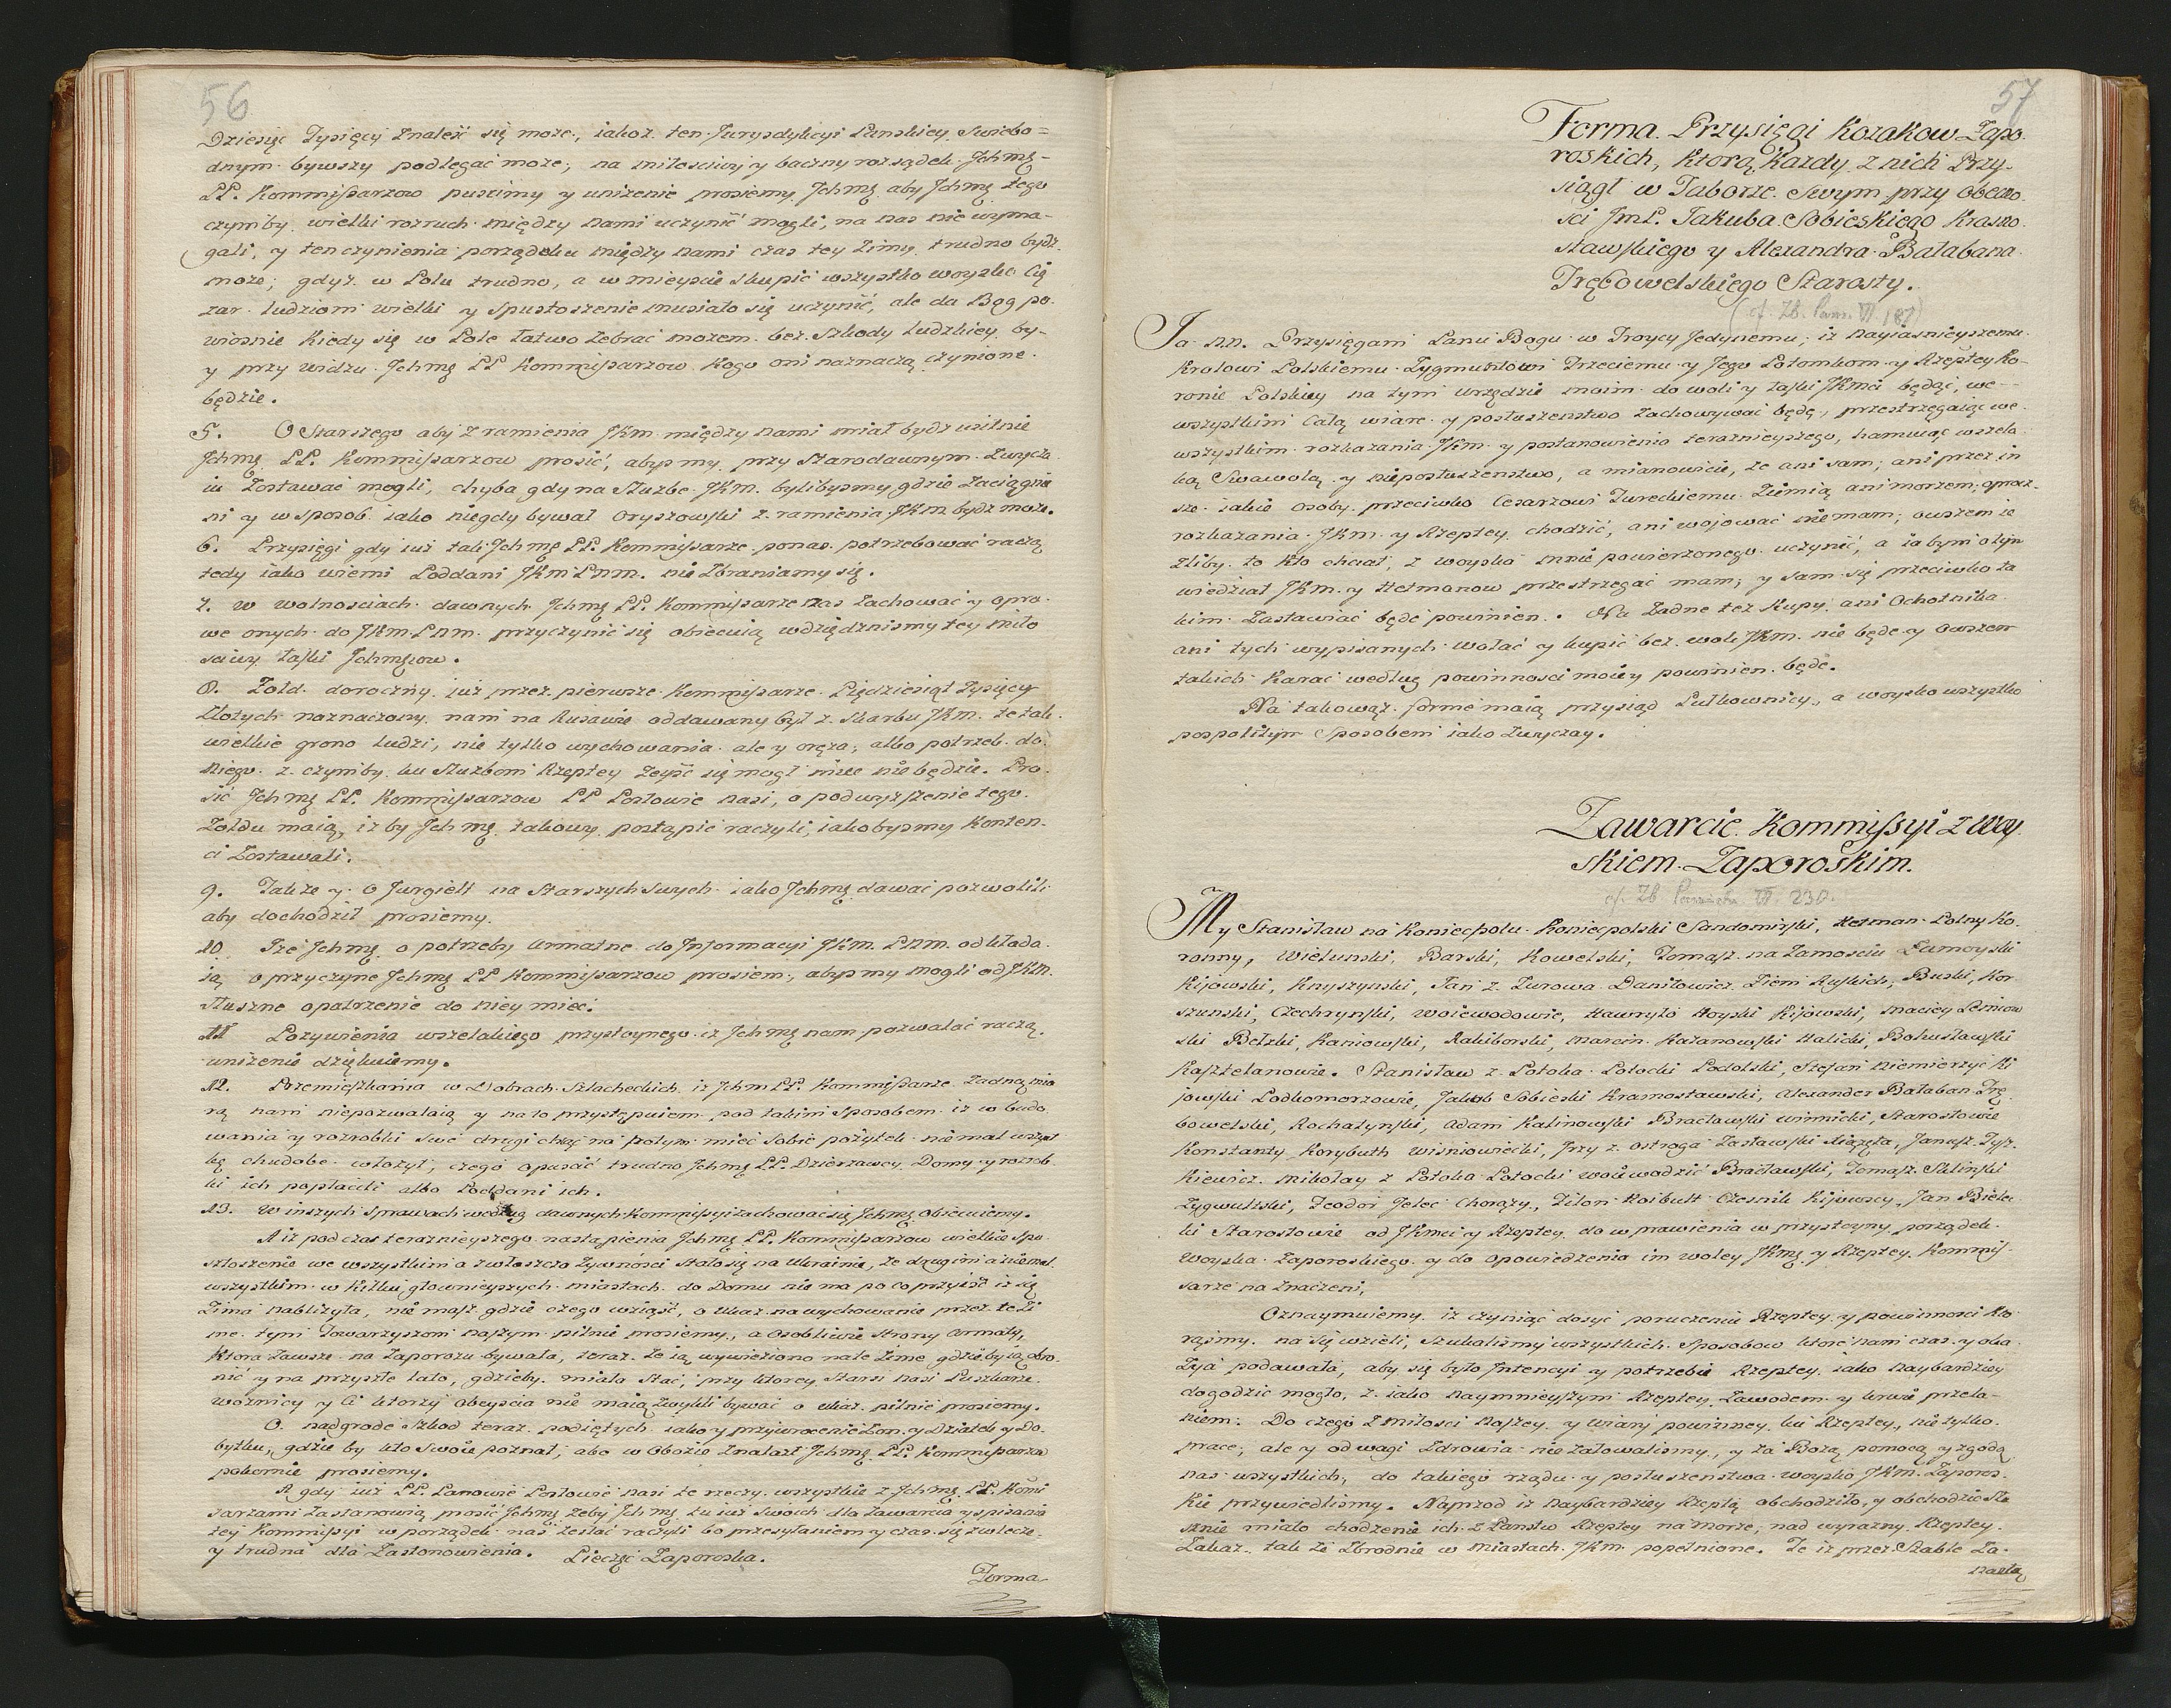 56
Dziesięc Tysięcy znaleść się może, iakoż ten Jurysdykcyi Panskiey Swiebo=
dnym bywszy podlegać może, na miłosciwy y baczny rozsądek Jchmę-
PP. Kommissarzow puscimy y uniżenie prosiemy Jchmę aby Jchmę tego
czymby wielki rozruch między nami uczynić mogli, na nas nie wyma-
gali, y ten czynienia porządeku między nami czas tey Zimy trudno bydz
może; gdyż w Polu trudno, a w mieyscu skupić wszystko woysko Cię
żar ludziom wielki y spustoszenie musiało się uczynić, ale da Bog po.
wiosnie kiedy się w Pole łatwo Zebrac możem bez Szkody ludzkiey by-
y przy widzu Jchmę PP Kommissarzow kogo oni naznaczą czynione
będzie.
5. O Starszego aby z ramienia JKm między nami miał bydz usilnie
Jchmę PP. Kommissarzow prosić, abysmy przy Starodawnym Zwycza
iu Zostawać mogli, chyba gdy na Służbe JKm. bylibysmy gdzie Zaciągnie
ni y w sposob iako niegdy bywał Oryszowski z ramienia JKm bydz może.
6. Przysięgi gdy iuż tak Jchmę PP. Kommissarze ponas potrzebować raczą
tedy iako wierni Poddani JKm Pnm. nie Zbraniamy się.
7. w wolnosciach dawnych Jchmę PP. Kommissarze nas Zachować y opra
we onych do JKm Pnm. przyczynić się obiecuią wdzięcznismy tey miło
sciwy łaski Jchmęiow.
8. Zołd doroczny iuż przez pierwsze Kommissarze Pięcdziesiąt Tysięcy
Złotych naznaczony nam na Rusawie oddawany był z Skarbu JKm. te tak
wielkie grono ludzi, nie tylko wychowania ale y oręża, albo potrzeb do
niego z czymby ku Służbom Rzeptey Zeyść się mogł miec nie będzie. Pro-
sić Jchmę PP. Kommissarzow PP Posłowie nasi, o podwyższenie tego
Zołdu maią, iżby Jchmę takowy postąpić raczyli, iakobysmy Konten-
ci Zostawali.
9. Także y o Jurgielt na Starszych Swych iako Jchmę dawać pozwolili
aby dochodził prosiemy.
10. Iże Jchmę o potrzeby armatne do Jnformacyi JKm. Pnm. odkłada-
ią, o przyczyne Jchmę PP Kommissarzow prosiem, abysmy mogli od JKm.
słuszne opatrzenie do niey mieć.
11 Pożywienia wszelakiego przystoynego iż Jchmę nam pozwalać raczą
uniżenie dziękuiemy.
12. Pzemieszkania w Dobrach Szlacheckich iż Jchm PP. Kommissarze żadną mia
rą nam niepozwalaią y na to przystępuiem pod takim Sposobem iż w budo
wania y rozrobki swe drugi chcąc na potym mieć Sobie pożytek niemal wszyst
kę chudobe włożył, czego opuscić trudno Jchmę PP. Dzierzawcy Domy y rozrob
ki ich popłacili albo Poddani ich.
13. W inszych Sprawach według dawnych Kommissyi zachować się Jchmę Obiecuiemy.
A iż pod czas terażnieyszego nastąpienia Jchmę PP. Kommissarzow wielkie Spu
stoszenie we wszystkim a zwłaszcza Zywności stało się na Ukrainie, że drugim a niemal
wszystkim w Kilku głownieyszych miastach do Domu nie ma po co przyiść iż się
Zima nabliżyła, nie masz gdzie czego wziąść, o Ukaz na wychowanie przez te Zi
me tym Towarzyszom naszym pilnie prosiemy, a osobliwie Strony armaty,
Ktora Zawsze na Zaporożu bywała, teraz że ią wywieziono na te Zime gdzieby ią obro-
nić y na przyszłe lato, gdzieby miała stać, przy ktorey Starsi nasi Puszkarze
woźnicy y Ci ktorzy obeyscia nie maią zwykli bywać o Ukaz pilnie prosiemy.
O nadgrode Szkod teraz podiętych iako y przywrocenie Zon y Dziatek y Do-
bytku, gdzie by kto swoie poznał, abo w Obozie znalazł Jchmę PP. Kommissarzow
pokornie prosiemy.
A gdy iuż PP. Panowie Posłowie nasi te rzeczy wszystkie z Jchmę PP. Kommi
sarzami Zastanowią prosić Jchmę żeby Jchmę tu iuż swoich dla Zawarcia y spisania
tey Kommissyi w porządek nas zesłać raczyli bo przesyłaniem y czas się zwlecze
y trudna dla Zastonowienia. Pieczęć Zaporoska.
Forma
57
Forma Przysięgi Kozakow Zapo-
roskich, Ktorą Każdy z nich Przy-
siągł w Taborze Swym przy Obecno
sci JmP. Jakuba Sobieskiego Krasno
stawskiego y Alexandra Bałabana
Tręбowelskiego Starosty.
(cf. Zb. Pam. VI. 187)
Ja NN. Przysięgam Panu Bogu w Troycy Jedynemu; iż Nayiasnieyszemu
Krolowi Polskiemu Zygmuntowi Trzeciemu y Jego Potomkom y Rzeptey Ko-
ronie Polskiey na tym urzędzie moim do woli y łaski JKmci będąc, we-
wszystkim Całą wiare y posłuszenstwo zachowywać będę, przestrzegaiąc we
wszystkim rozkazania JKm. y postanowienia terażnieyszego, hamuiąc wszela
ką Swawolą y nieposłuszenstwo, a mianowicie, że ani sam; ani przez in
sze iakie osoby przeciwko Cesarzowi Tureckiemu Ziemią ani morzem, oprocz
rozkazania JKm. y Rzeptey chodzić, ani wojować nie mam; owszem ie
żliby to kto chciał, z woyska mnie powierzonego uczynić, a ia bym o tym
wiedział JKm. y Hetmanow przestrzegać mam; y sam się przeciwko ta
kim Zastawiać będę powinien. Na żadne też Kupy ani Ochotnika
ani tych wypisanych wołać y kupić bez woli JKm. nie będę y owszem
takich Karać według powinnosci moiey powinien będę.
Na takowąż forme maią przysiąd Pułkownicy, a woysko wszystko
pospolitym Sposobem iako Zwyczay.
Zawarcie Kommissyi z Woy
skiem Zaporoskim.
cf. Zb Pamiętn. VI. 230.
My Stanisław na Koniecpolu Koniecpolski Sandomirski, Hetman Polny Ko-
ronny, Wielunski, Barski, Kowelski, Tomasz na Zamosciu Zamoyski
Kijowski, Knyszynski, Jan z Zurowa Daniłowicz Ziem Ruskich, Buski, Kor
szunski, Czechrynski, Woiewodowie, Hawryło Hoyski Kijowski, Maciey Lesniow
ski Bełzki, Kaniowski, Rakiborski, Marcin Kazanowski Halicki, Bohusławski
Kasztelanowie. Stanisław z Potoka Potocki Podolski, Stefan Niemierzyc Ki
jowski Podkomorzowie, Jakub Sobieski Kramostawski, Alexander Bałaban Trę
bowelski, Rochatynski, Adam Kalinowski Bracławski winnicki, Starostowie
Konstanty Korybuth Wiśniowiecki, Jrzy z Ostroga Zasławski Xiążęta, Janusz Tysz-
Kiewicz, Mikołay z Potoka Potocki Woiewodzić Bracławski, Tomasz Sklinski
Zygwulski, Teodor Jelec Chorąży, Filon Hoibutt Czesnik Kijowscy, Jan Bielec
ki Starostowie od JKmci y Rzeptey do wprawienia w przystoyny porządek
Woyska Zaporoskiego y do opowiedzenia im woley JKmę y Rzeptey, Kommis-
sarze na Znaczeni,
Oznaymuiemy iż czyniąc dosyć poruczeniu Rzeptey y powinnosci Kto
rąsmy na się wzieli, szukalismy wszystkich Sposobow ktore nam czas y oka
Zya podawała, aby się było Jntencyi y potrzebie Rzeptey iako naybardziey
dogodzic mogło, z iako naymnieyszym Rzeptey Zawodem y krwie przela-
niem. Do czego z miłosci naszey y wiary powinney ku Rzeptey, nie tylko
prace, ale y odwagi Zdrowia nie żałowalismy, y za Bożą pomocą y zgodą
nas wszystkich, do takiego rządu y posłuszenstwa woysko JKm. Zaporos-
kie przywiedlismy. Naprzod iż naybardziey Rzeptą obchodziło, y obchodzic Słu
sznie miało chodzenie ich z Panstw Rzeptey na morze, nad wyrazny Rzeptey
Zakaz, tak że Zbrodnie w miastach JKm popełnione. Te iż przez Szable Za-